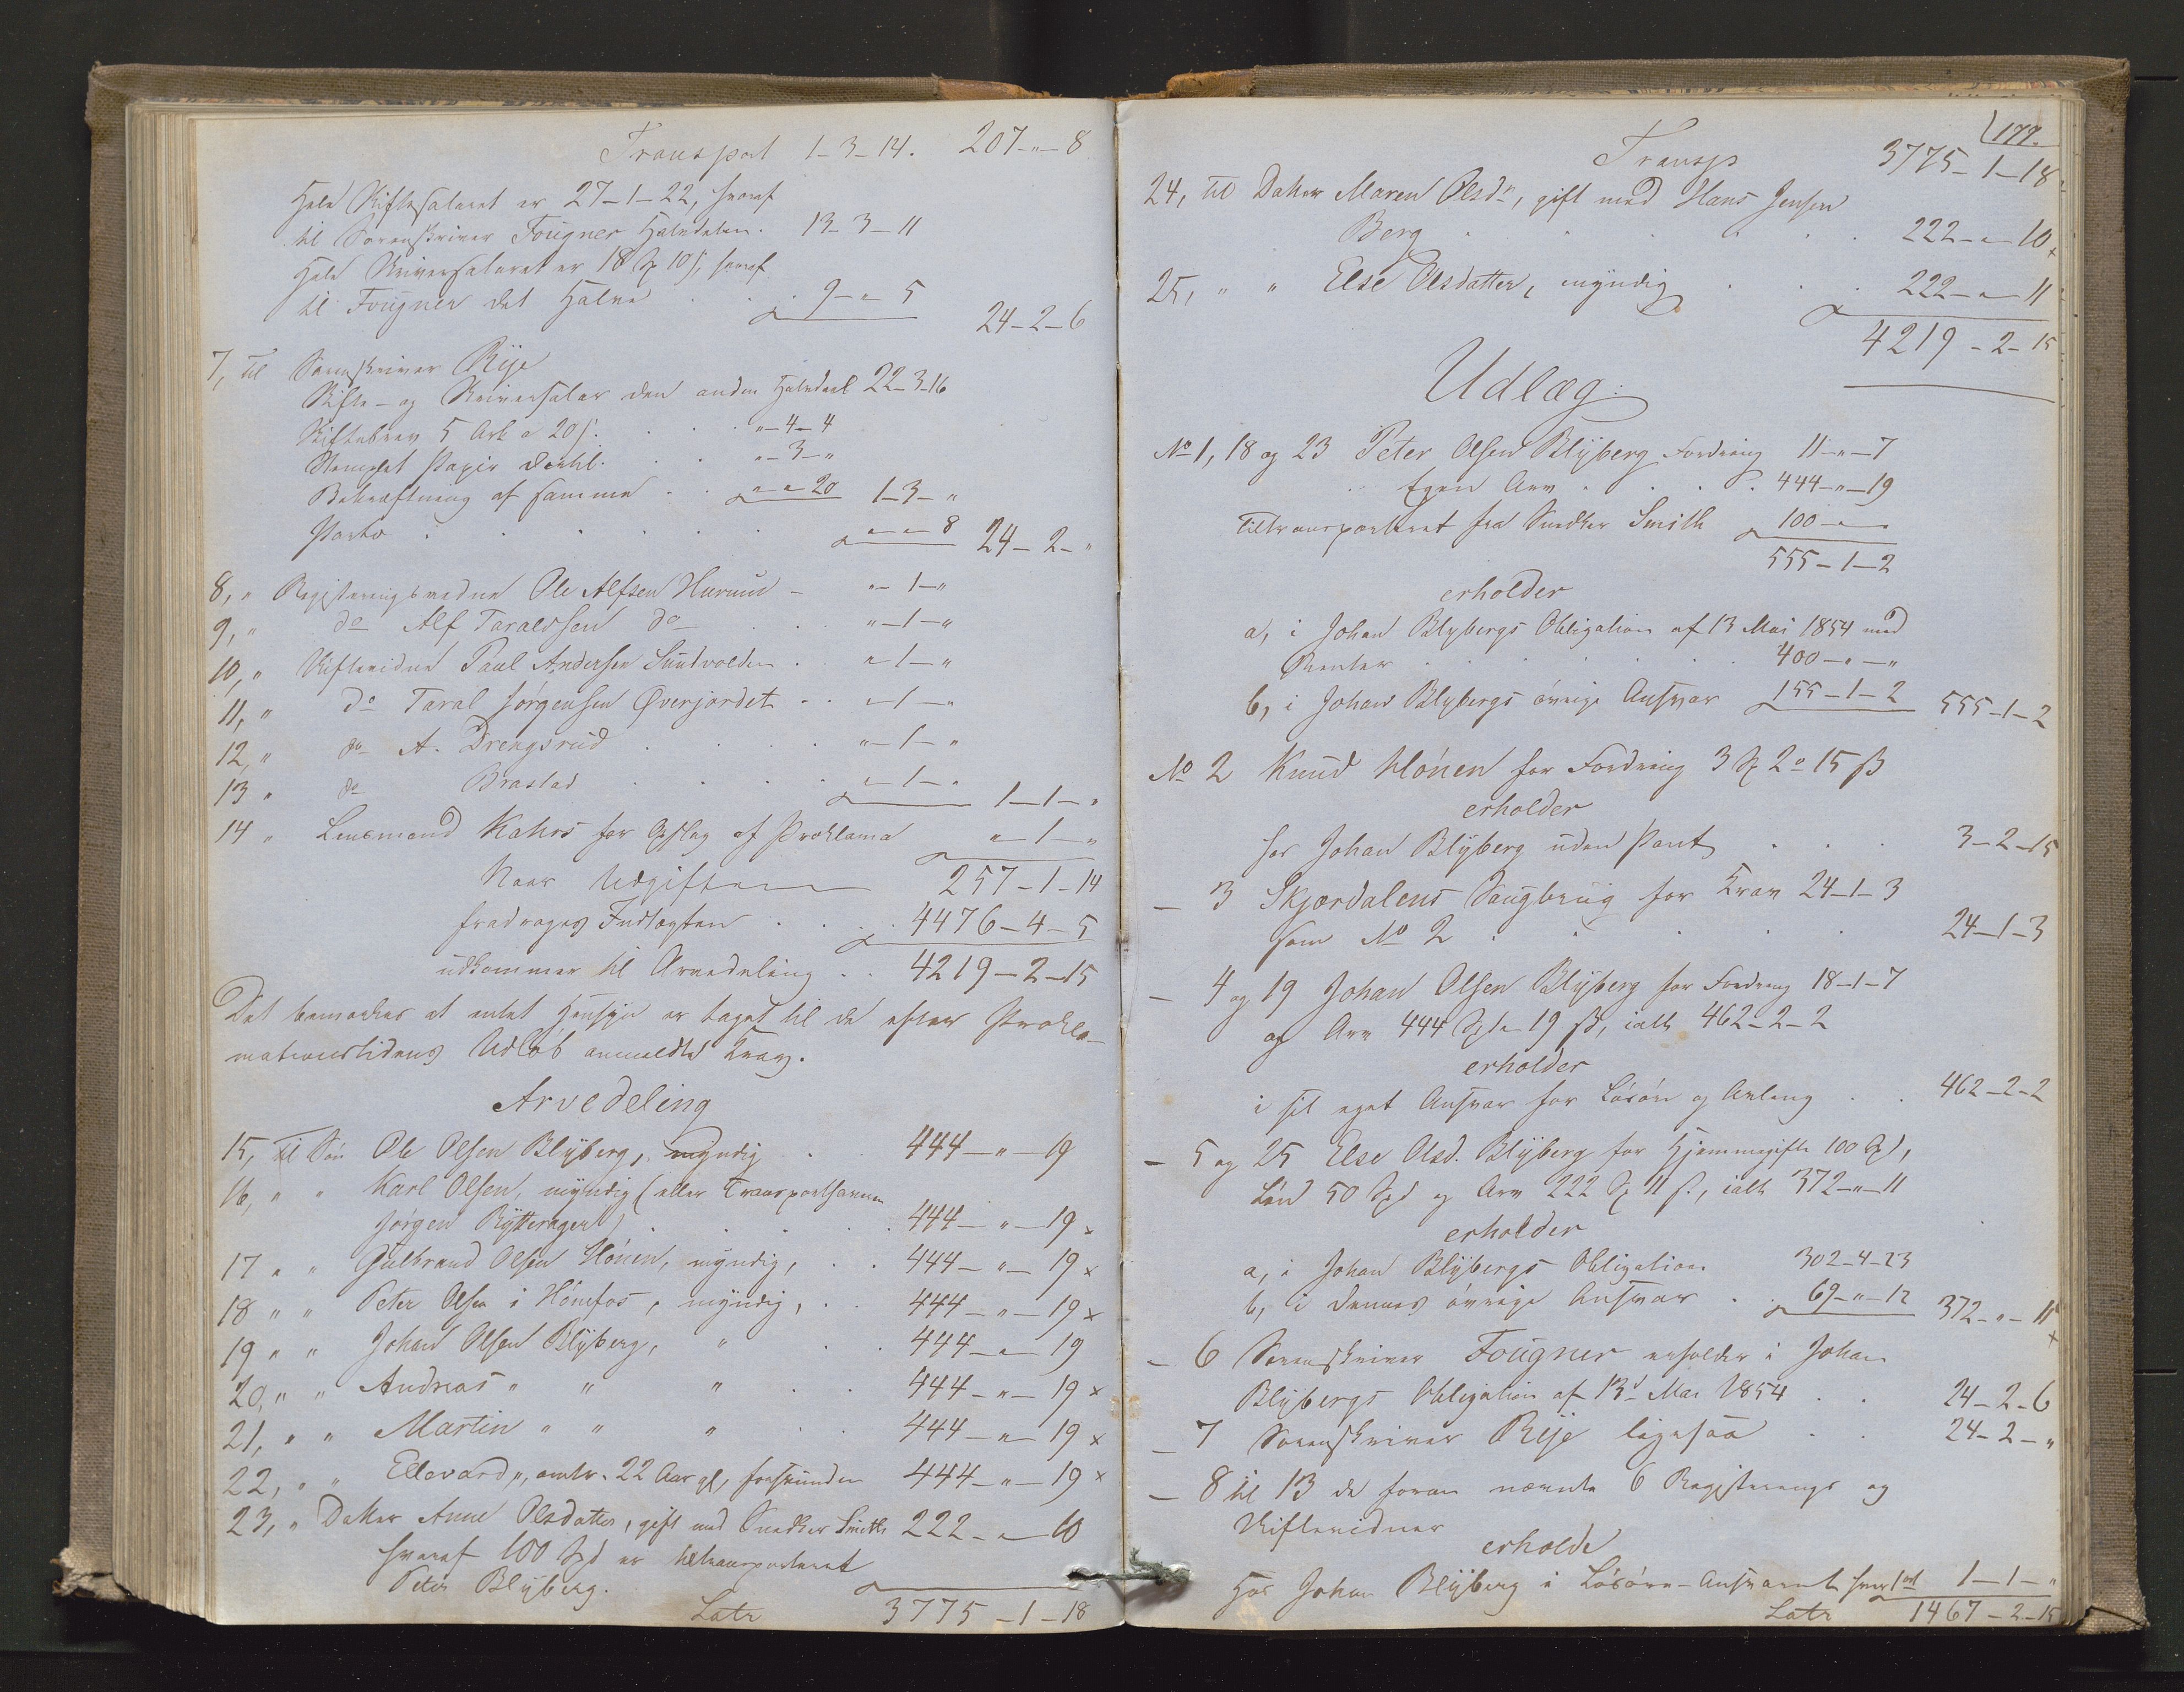 Transport 1-3-14. 207-"-8
Hele Skiftesalaret er 27-1-22, hvoraf
til Sorenskriver Fougner Halvdelen. 13-3-11
Hele Skriversalaret er 18 Sp 10 s, hvoraf
til Fougner det Halve . . . 9-"-5 24-2-6
7, til Sorenskriver Rije
Skifte- og Skriversalar den anden Halvdeel 22-3-16
Skiftebrev 5 Ark a 20 s. . . . "-4-4
Stemplet Papir . . "-3-"
Bekræftning af samme . . "-"-20 1-3-"
Porto . . . . . "-"-8 24-2-"
8, " Registreringsvidne Ole Alfsen Hurum - "-1-"
9, " do Alf Taraldsen do . . . "-1-"
10, " Skiftevidne Paul Andersen Sundvolden . "-1-"
11, " do Taral Jørgensen Øverjordet . . "-1-"
12, " do A. Drengsrud . . . "-1-"
13 " do Brastad . . . . "-1-" 1-1-"
14 " Lensmand Kahrs for Opslag af Proklama "-1-"
Naar Udgiften 257-1-14
fradrages Indtægten . . . 4476-4-5
udkommer til Arvedeling . . 4219-2-15
Det bemærkes at intet Hensyn er taget til de efter Prokla-
mationstidens Udløb anmeldte Krav.
Arvedeling
15, til Søn Ole Olsen Blyberg, myndig . 444-"-19
16, " " Karl Olsen, myndig (eller Transporthaveren
Jørgen Rytterager) . . . . . 444-"-19 x
17 " " Gulbrand Olsen Hønen, myndig, . . 444-"-19 x
18 " " Peter Olsen i Hønefos, myndig, . . 444-"-19 x
19 " " Johan Olsen Blyberg, " . . 444-"-19
20, " " Andreas " " " . . 444-"-19 x
21, " " Martin " " " . . 444-"-19 x
22, " " Ellevard ", omtr. 22 Aar gl, forsvunden 444-"-19 x
23, " Datter Anne Olsdatter, gift med Snedker Smith 222-"-10
hvoraf 100 Spd er tiltransporteret
Peter Blyberg.
Latr 3775-1-18
177.
Transp 3775-1-18
24, til Datter Maren Olsdr, gift med Hans Jensen
Berg . . . . . . 222-"-10 x
25, " " Else Olsdatter, myndig . . . 222-"-11
4219-2-15
Udlæg:
No 1, 18 og 23 Peter Olsen Blyberg Fordring 11-"-7
Egen Arv . . . . 444-"-19
Tiltransporteret fra Snedker Smith 100-"-"
555-1-2
erholder
a, i Johan Blybergs Obligation af 13 Mai 1854 med
Renter . . . . . . 400-"-"
b, i Johan Blybergs øvrige Ansvar 155-1-2 555-1-2
No 2 Knud Hønen for Fordring 3 Sp 2 o 15 ß
erholder
hos Johan Blyberg uden Pant . . . 3-2-15
- 3 Skjærdalens Saugbrug for Krav 24-1-3
som No 2 . . . . . 24-1-3
- 4 og 19 Johan Olsen Blyberg for Fordring 18-1-7
og Arv 444 Spd 19 ß, ialt 462-2-2
erholder
i sit eget Ansvar for Løsøre og Avling . . 462-2-2
- 5 og 25 Else Olsd. Blyberg for Hjemmegifte 100 Sp,
Løn 50 Spd og Arv 222 Sp 11 s., ialt 372-"-11
erholder
a, i Johan Blybergs Obligation 302-4-23
b, i dennes øvrige Ansvar . . 69-"-12 372-"-11 x
- 6 Sorenskriver Fougner erholder i Johan
Blybergs Obligation af 13d Mai 1854 . . 24-2-6
- 7 Sorenskriver Rije ligesaa . . 24-2-"
- 8 til 13 de foran nævnte 6 Registrerings og
Skiftevidner
erholde
hos Johan Blyberg i Løsøre-Ansvaret hver 1 ort 1-1-"
Latr 1467-2-15